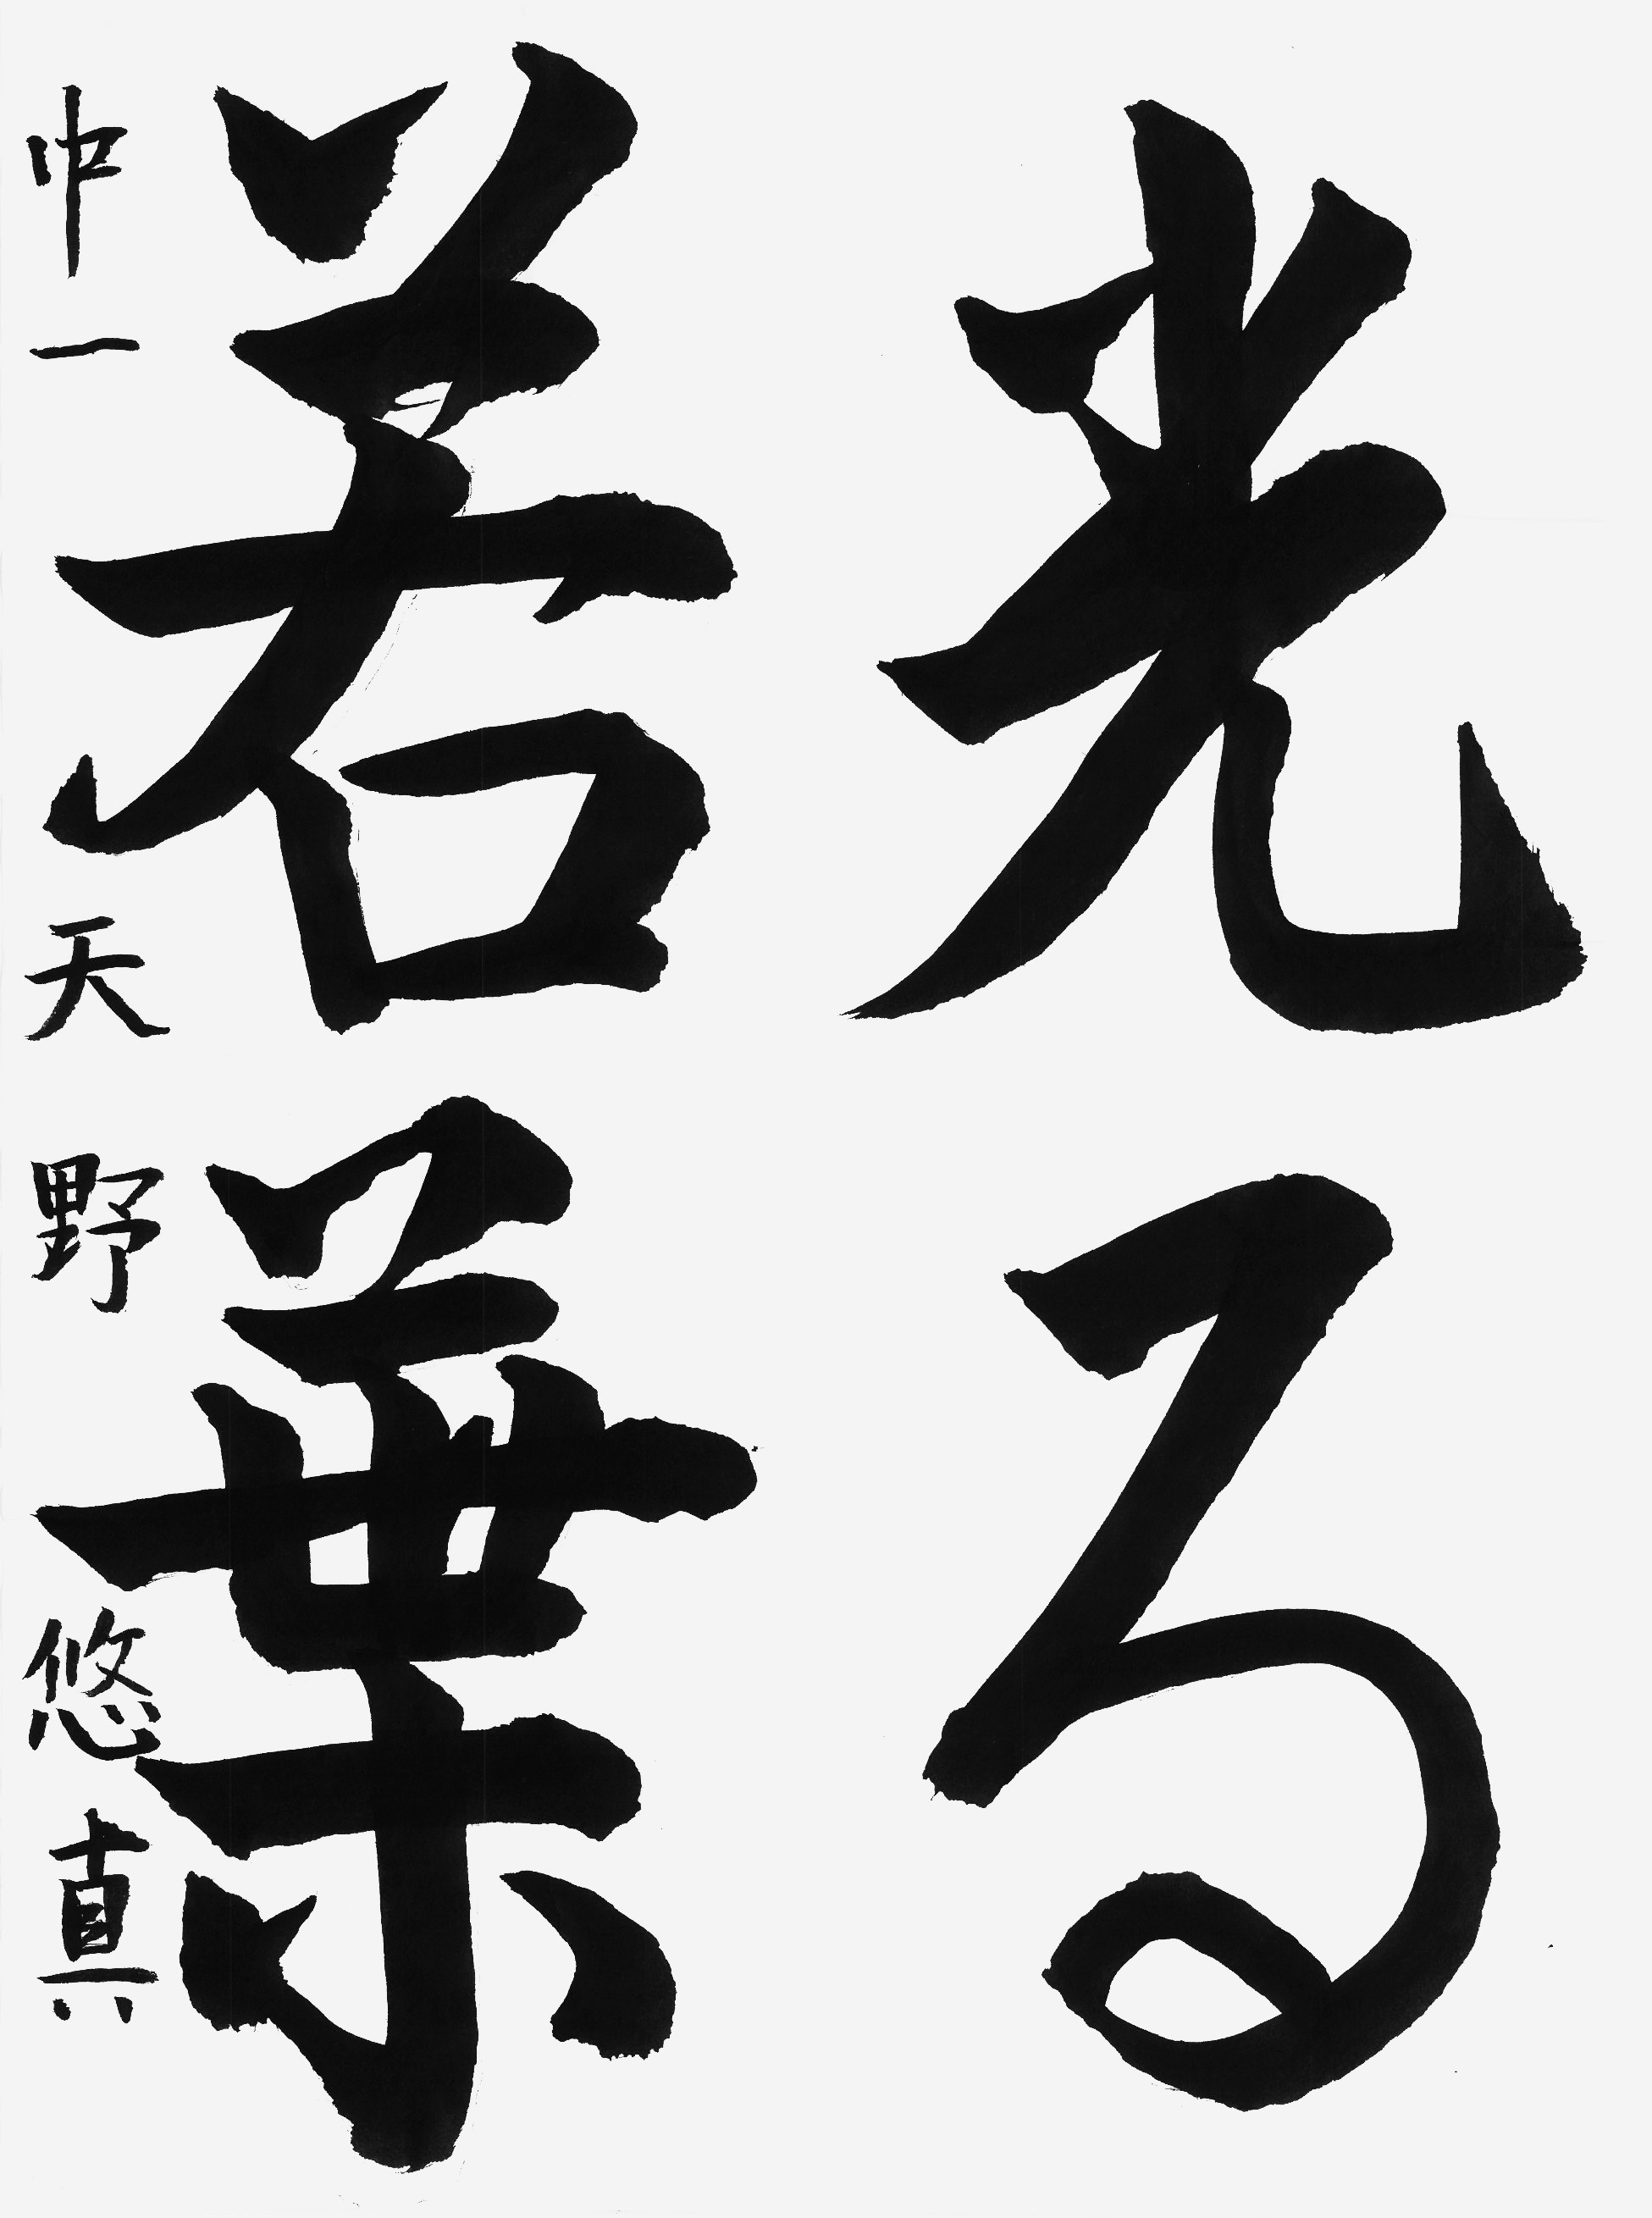 光る
若葉
中一 天野悠真